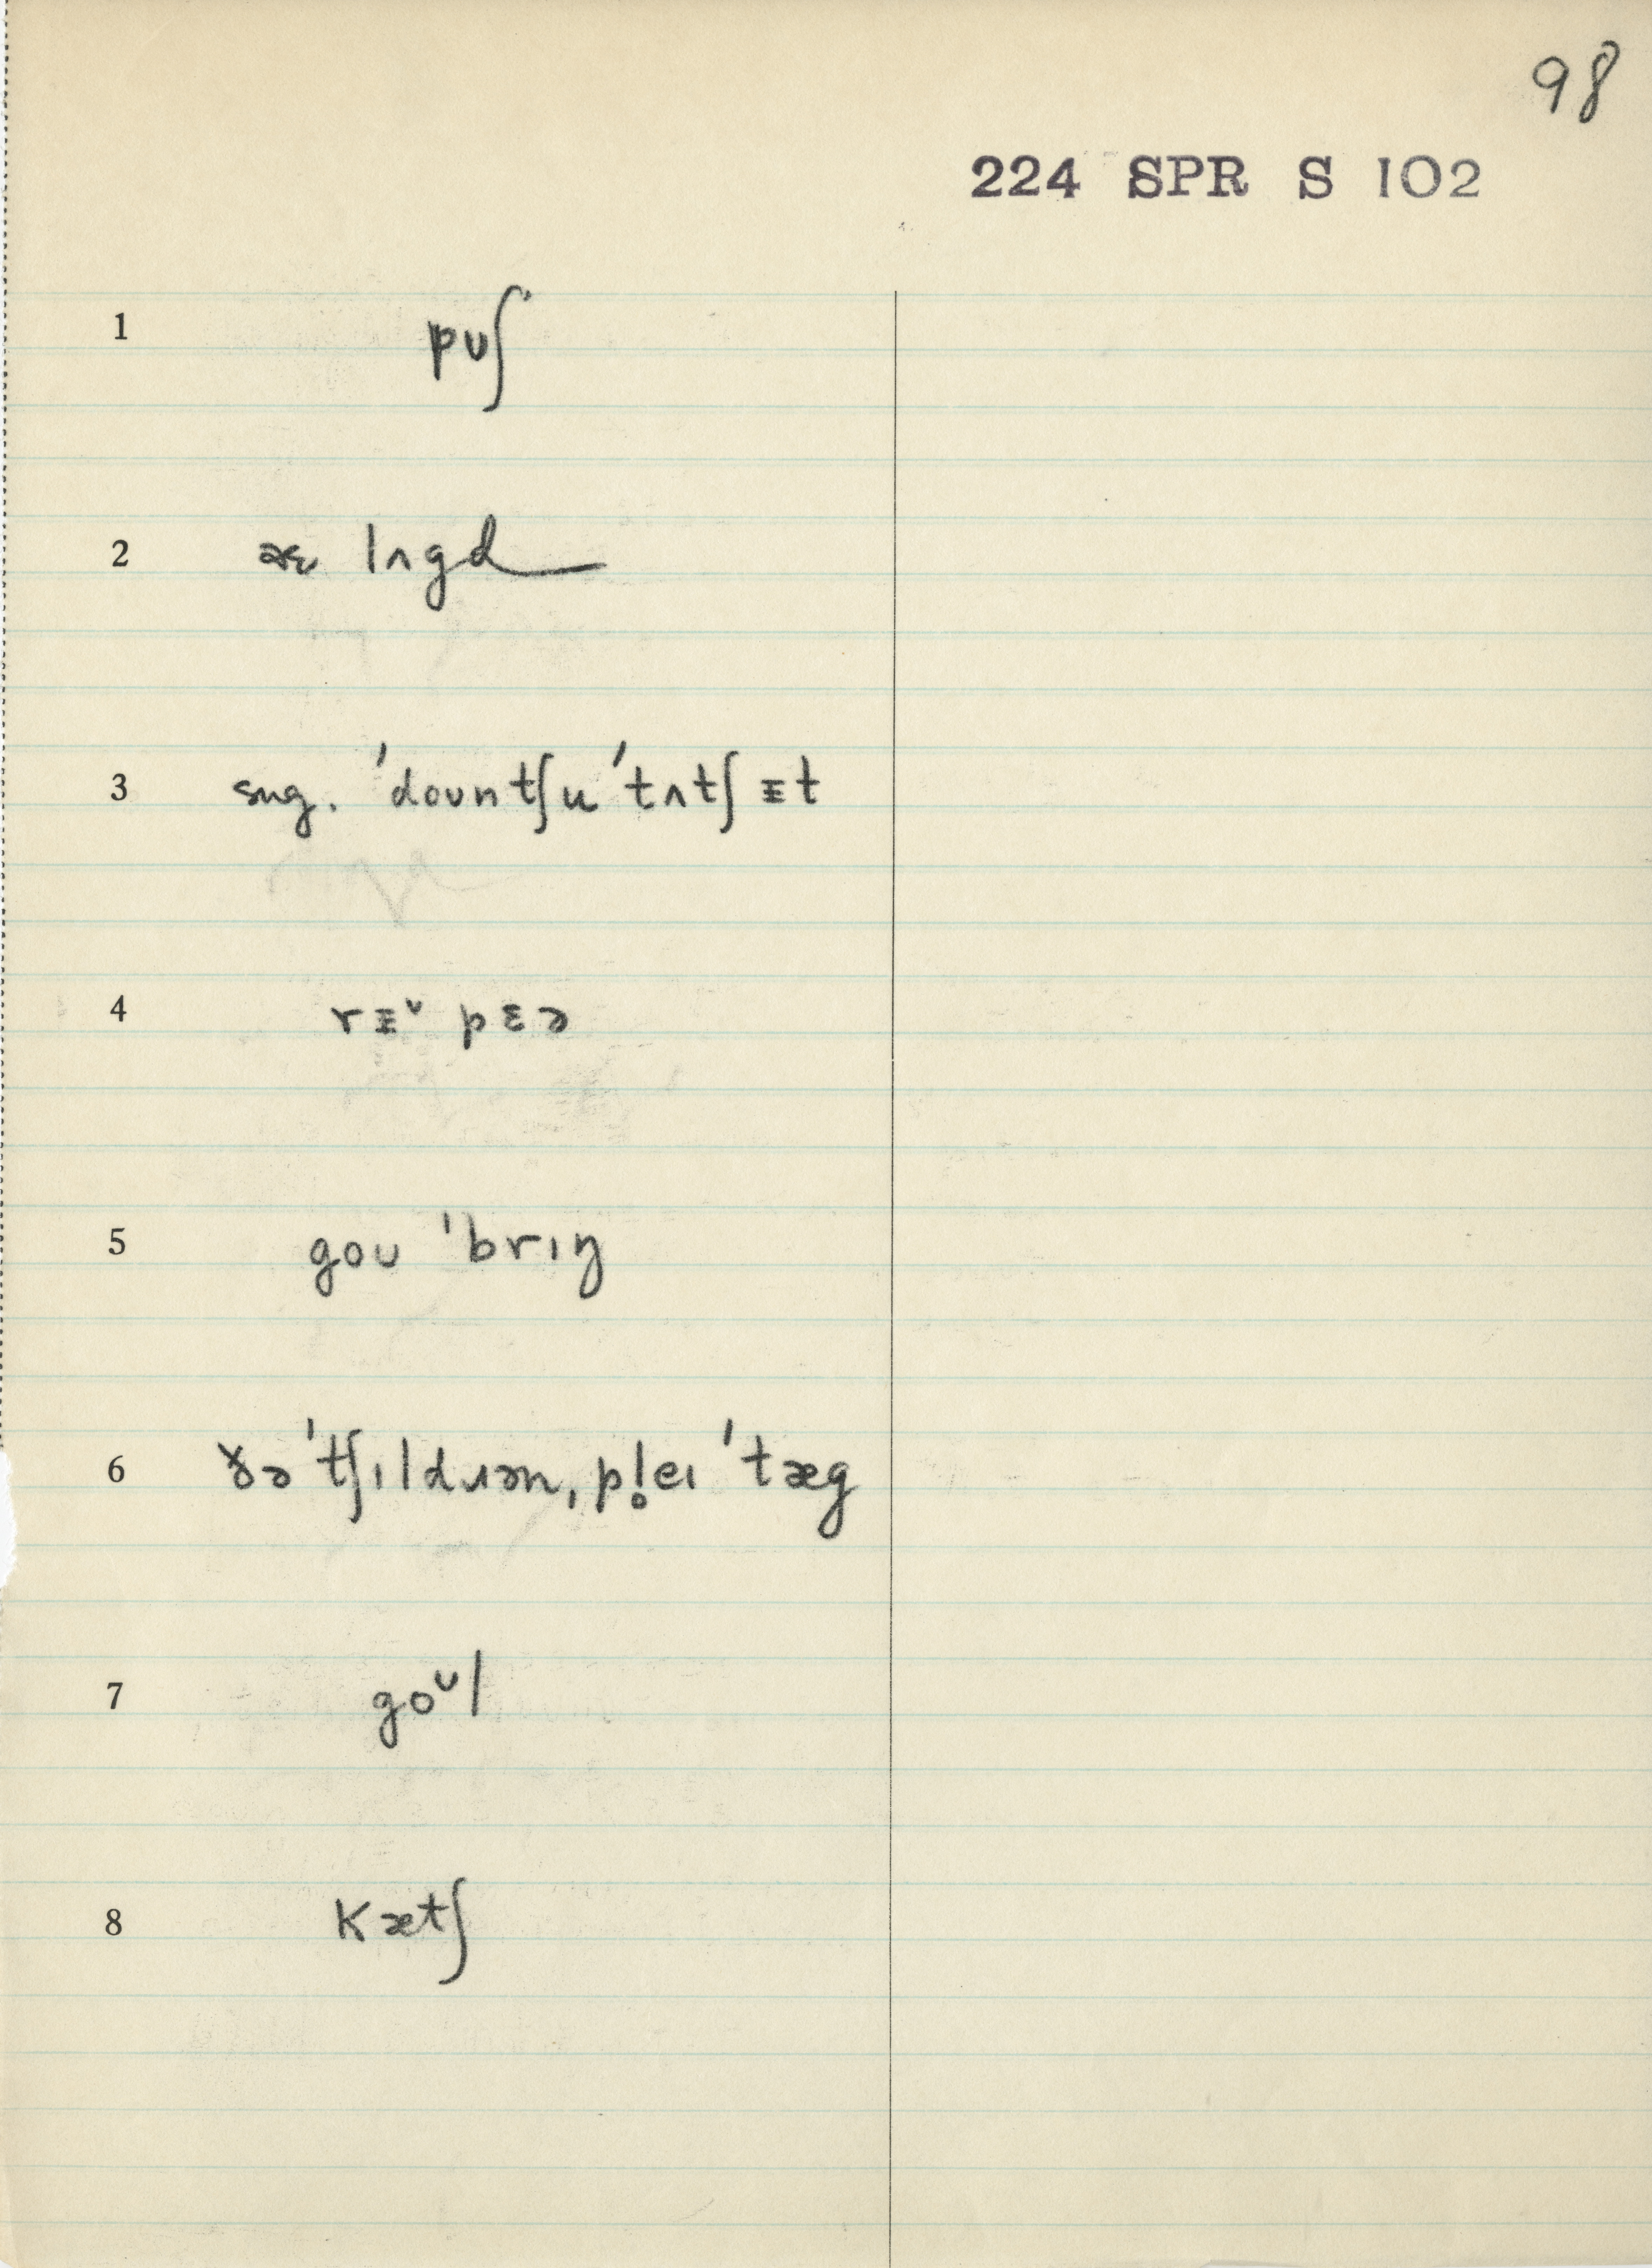 98
224 SPR S 102
1 pʊʃ
2 æɛ lʌgd
3 sug. ˈdoʊntʃu ˈtʌtʃ ɪt
4 rɪᵛ pɛə
5 goʊ ˈbrɪŋ
6 ðə ˈtʃɪldɹən, pl̥eɪ ˈtæg
7 goᶷl
8 kætʃ